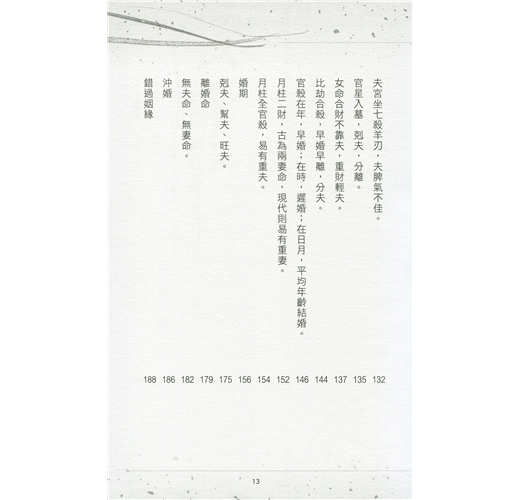 夫宮坐七殺羊刃，夫脾氣不佳。 132
官星入墓，剋夫，分離。 135
女命合財不靠夫，重財輕夫。 137
比劫合殺，早婚早離，分夫。 144
官殺在年，早婚；在時，遲婚；在日月，平均年齡結婚。 146
月柱二財，古為兩妻命，現代則易有重妻。 152
月柱全官殺，易有重夫。 154
婚期 156
剋夫、幫夫、旺夫。 175
離婚命 179
無夫命、無妻命。 182
沖婚 186
錯過姻緣 188
13